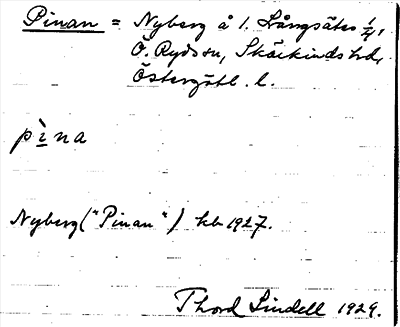 Pinan = Nyberg å 1. Långsätes 1/4,
Ö. Ryds sn, Skärkinds hd,
Östergötl. l.
pìna
Nyberg ("Pinan") kb 1927.
Thord Lindell 1929.